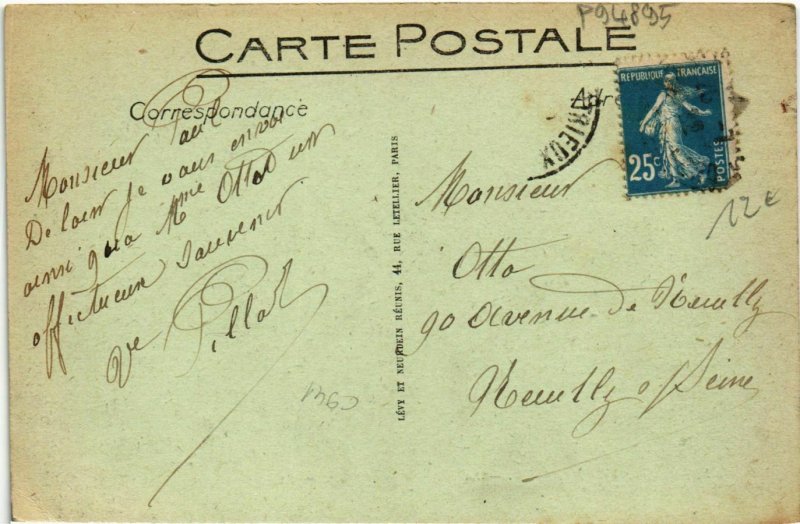 P94895
CARTE POSTALE
Correspondance
Adre
TRIEUX
REPUBLIQUE FRANÇAISE
25c
POSTES
12€
Monsieur Paul
De loin je vous envoi
ainsi qua Mme Otto un
affectueux souvenir
Ve Pillat
C941
LÉVY ET NEURDEIN RÉUNIS, 44, RUE LETELLIER, PARIS
Monsieur
Otto
90 Avenue de Neuilly
Neuilly s/ Seine